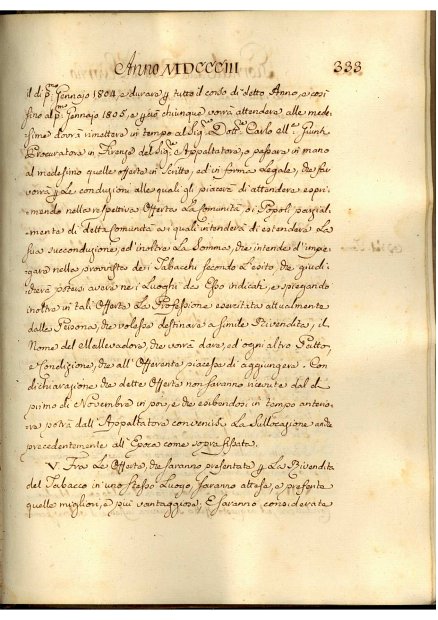 Anno MDCCCIII 333
il dì p.mo Gennajo 1804, e durare p tutto il corso di detto Anno, e così
fino al p.mo Gennajo 1805, e p ciò chiunque vorrà attendere alle mede-
sime dovrà rimettere in tempo al Sig.r Dott.r Carlo
Procuratore in Firenze del Sig.r Appaltatore, o passare in mano
al medesimo quelle offerte in Scritto, ed in forma Legale, che far
vorrà p Le condizioni alle quali gli piacerà di attendere espri-
mendo nella respettiva Offerta La Comunità, o i Popoli parzial-
mente di detta Comunità a i quali intenderà di estendere La
sua succonduzione, ed inoltre La Somma, che intende d'impie-
gare nella provvista dei Tabacchi secondo L'esito, che giudi-
cherà potere avere ne i Luoghi da Esso indicati, e spiegando
inoltre in tali Offerte La Professione esercitata attualmente
dalla Persona, che volesse destinare a simile Rivendita, il
Nome del Mallevadore, che vorrà dare, ed ogni altro Patto,
e Condizione, che all'Offerente piacesse di aggiungere. Con
dichiarazione che dette Offerte non saranno ricevute dal dì
primo di Novembre in poi, e che esibendosi in tempo anterio-
re potrà dall'Appaltatore convenirsi La Sullocazione anche
precedentemente all'Epoca come sopra fissata.
V. Fra Le Offerte, che saranno presentate p La Rivendita
del Tabacco in uno stesso Luogo, saranno attese, e prescelte
quelle migliori, e più vantaggiose. E saranno considerate